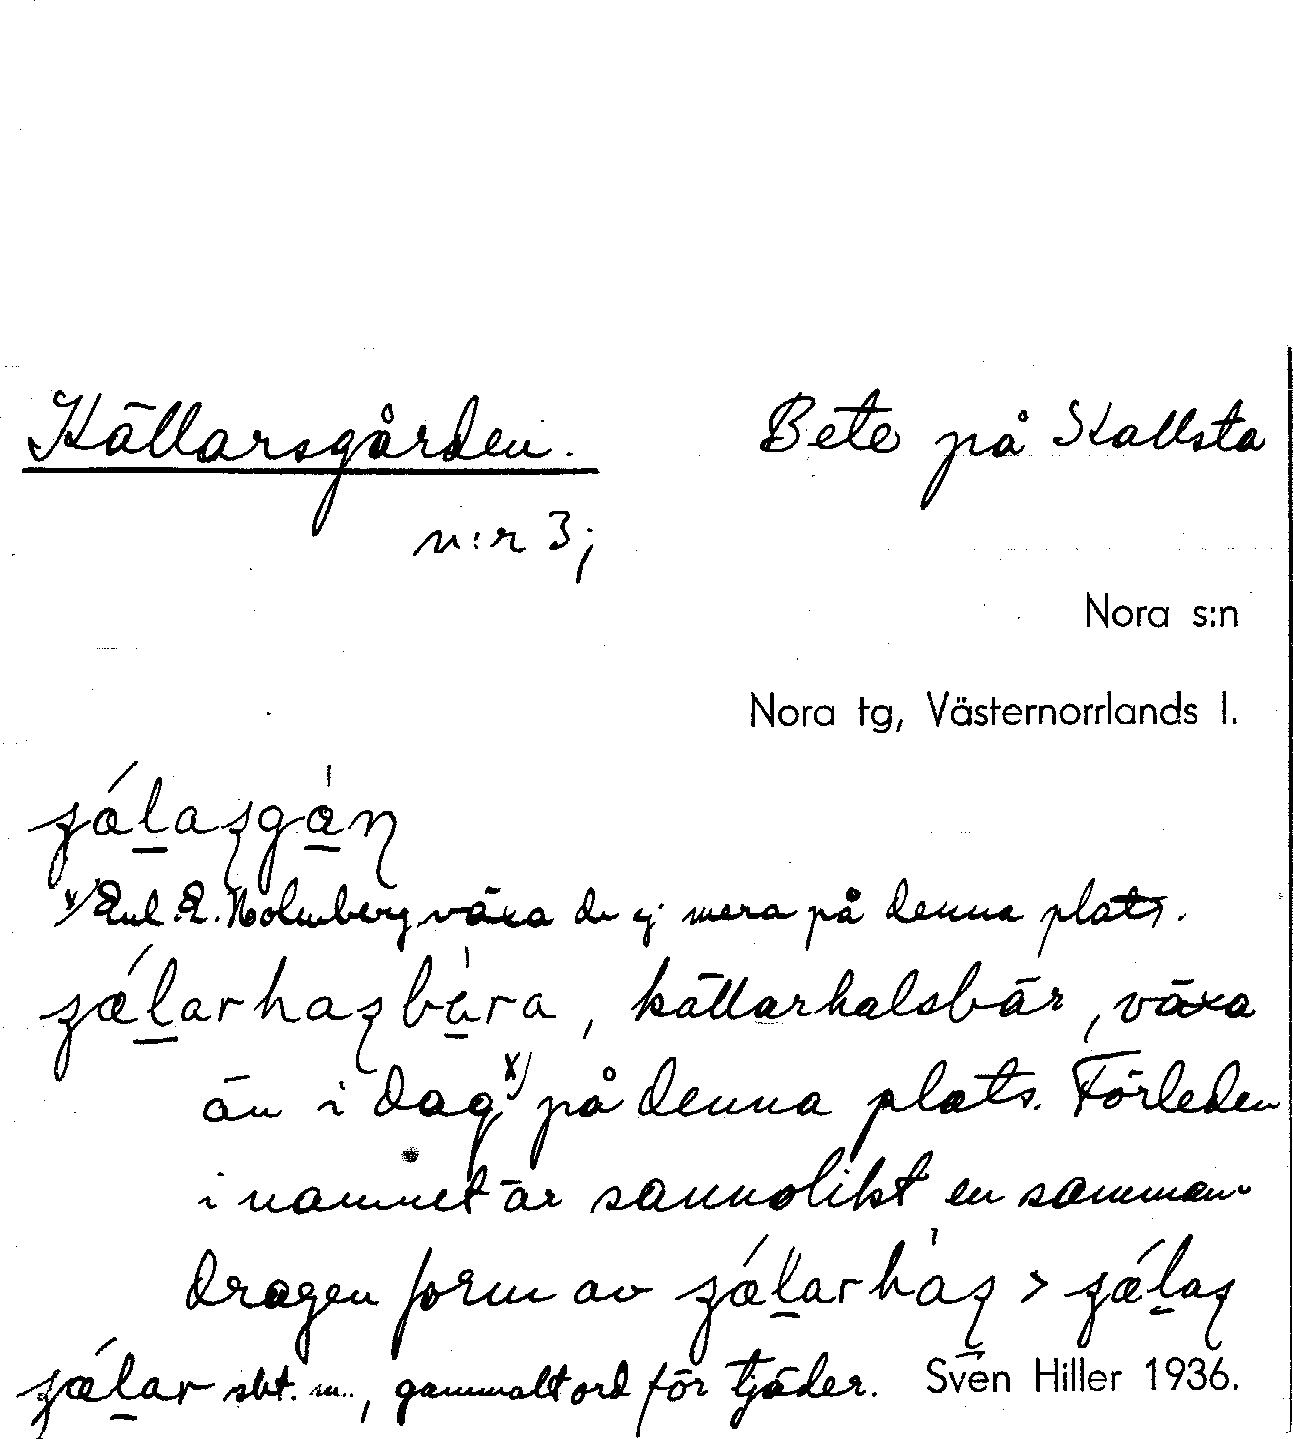 Källarsgården. Bete på Kallsta
n:r 3;
Nora s:n
Nora tg, Västernorrlands l.
x) Enl. E. Holmberg växa de ej mera på denna plats.
, källarhalsbär, växa
än i dag x) på denna plats. Förleden
i namnet är sannolikt en samman-
dragen form av >
sbt. m., gammalt ord för tjäder. Sven Hiller 1936.